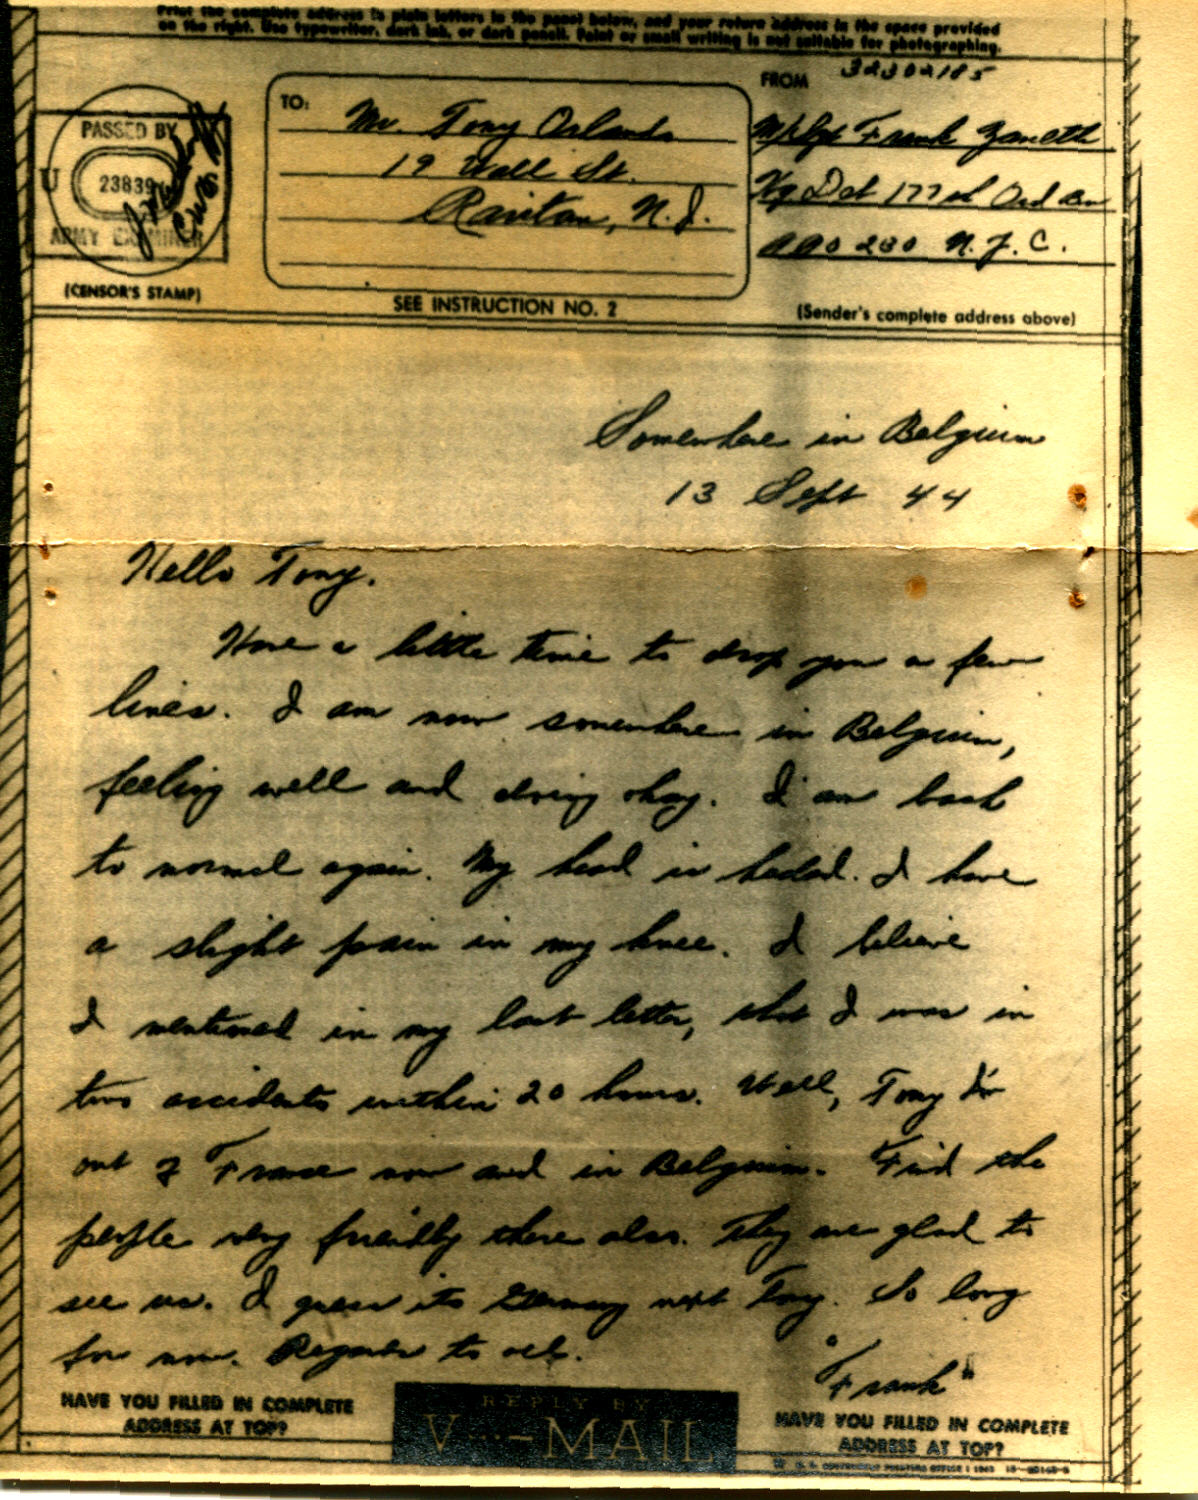 Print the complete address in plain letters in the panel below, and your return address in the space provided
on the right. Use typewriter, dark ink, or dark pencil. Faint or small writing is not suitable for photographing.
PASSED BY
U S
23839
ARMY EXAMINER
(CENSOR'S STAMP)
TO:
Mr. Tony Orlando
19 Wall St.
Raritan, N.J.
SEE INSTRUCTION NO. 2
FROM 32302185
M/Sgt Frank Zaneth
Hq Det 177th Ord Bn
APO 230 N.Y.C.
(Sender's complete address above)
Somewhere in Belgium
13 Sept 44
Hello Tony.
Have a little time to drop you a few
lines. I am now somewhere in Belgium,
feeling well and doing okay. I am back
to normal again. My head is healed. I have
a slight pain in my knee. I believe
I mentioned in my last letter, that I was in
two accidents within 20 hours. Well, Tony I'm
out of France now and in Belgium. Find the
people very friendly there also. They are glad to
see us. I guess its Germany next Tony. So long
for now. Regards to all.
"Frank"
HAVE YOU FILLED IN COMPLETE
ADDRESS AT TOP?
REPLY BY
V···—MAIL
HAVE YOU FILLED IN COMPLETE
ADDRESS AT TOP?